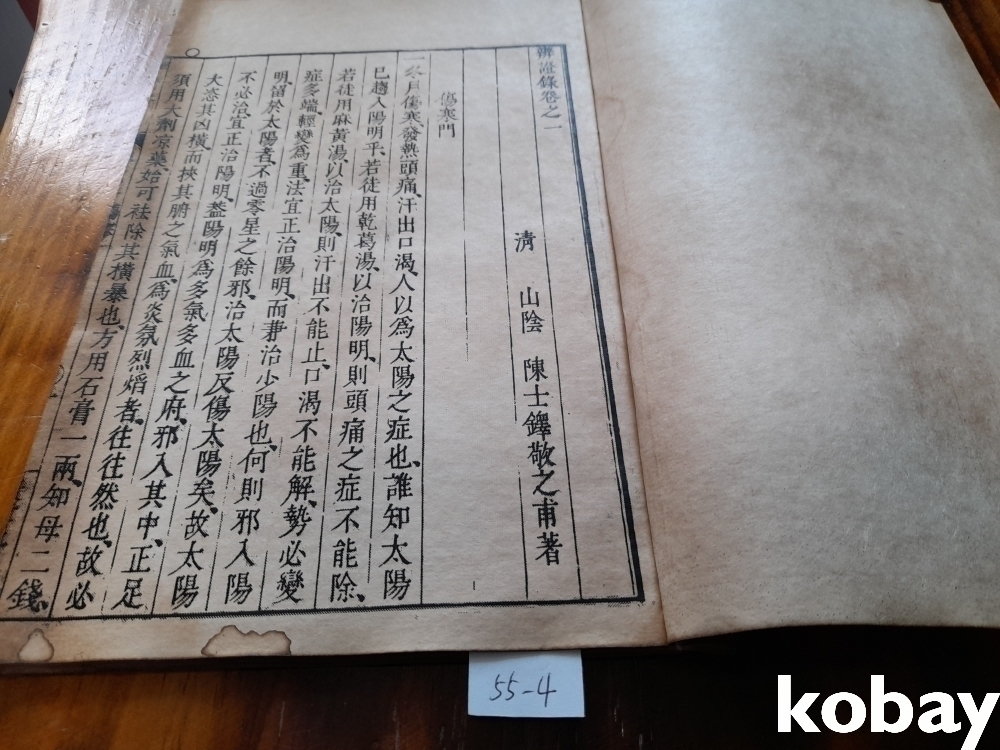 辨證錄卷之一
清 山陰 陳士鐸敬之甫著
傷寒門
一冬月傷寒、發熱頭痛、汗出口渴、人以爲太陽之症也、誰知太陽
已趨入陽明乎、若徒用乾葛湯、以治陽明、則頭痛之症不能除、
若徒用麻黃湯、以治太陽、則汗出不能止、口渴不能解、勢必變
症多端、輕變爲重、法宜正治陽明、而兼治少陽也、何則邪入陽
明、留於太陽者、不過零星之餘邪、治太陽反傷太陽矣、故太陽
不必治、宜正治陽明、蓋陽明爲多氣多血之府、邪入其中、正足
大恣其凶橫、而挾其腑之氣血、爲炎氛烈熖者、往往然也、故必
須用大劑凉藥、始可袪除其橫暴也、方用石膏一兩、知母二錢、
55-4
kobay